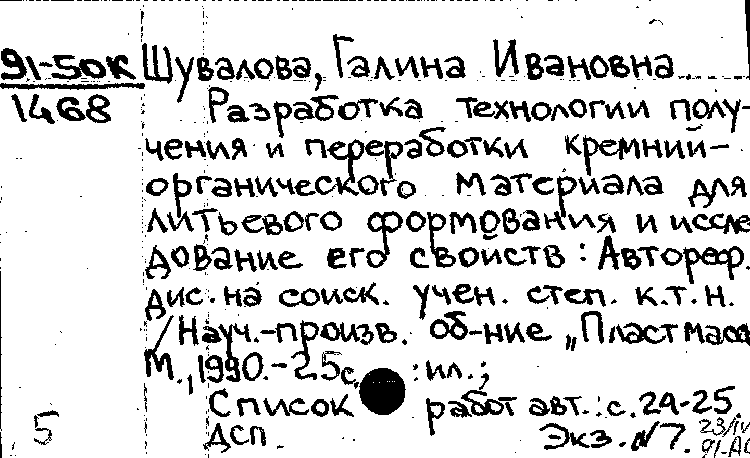 91-50К Шувалова, Галина Ивановна
1468 Разработка технологии полу-
чения и переработки кремний-
органического материала для
литьевого формования и иссле
дование его свойств : Автореф.
дис. на соиск. учен. степ. к.т.н.
/Науч.-произв. об-ние „Пластмасс
М., 1990.-25с. : ил.;
Список работ авт.: с.24-25.
5 ДСП. Экз. N7. 23/IV